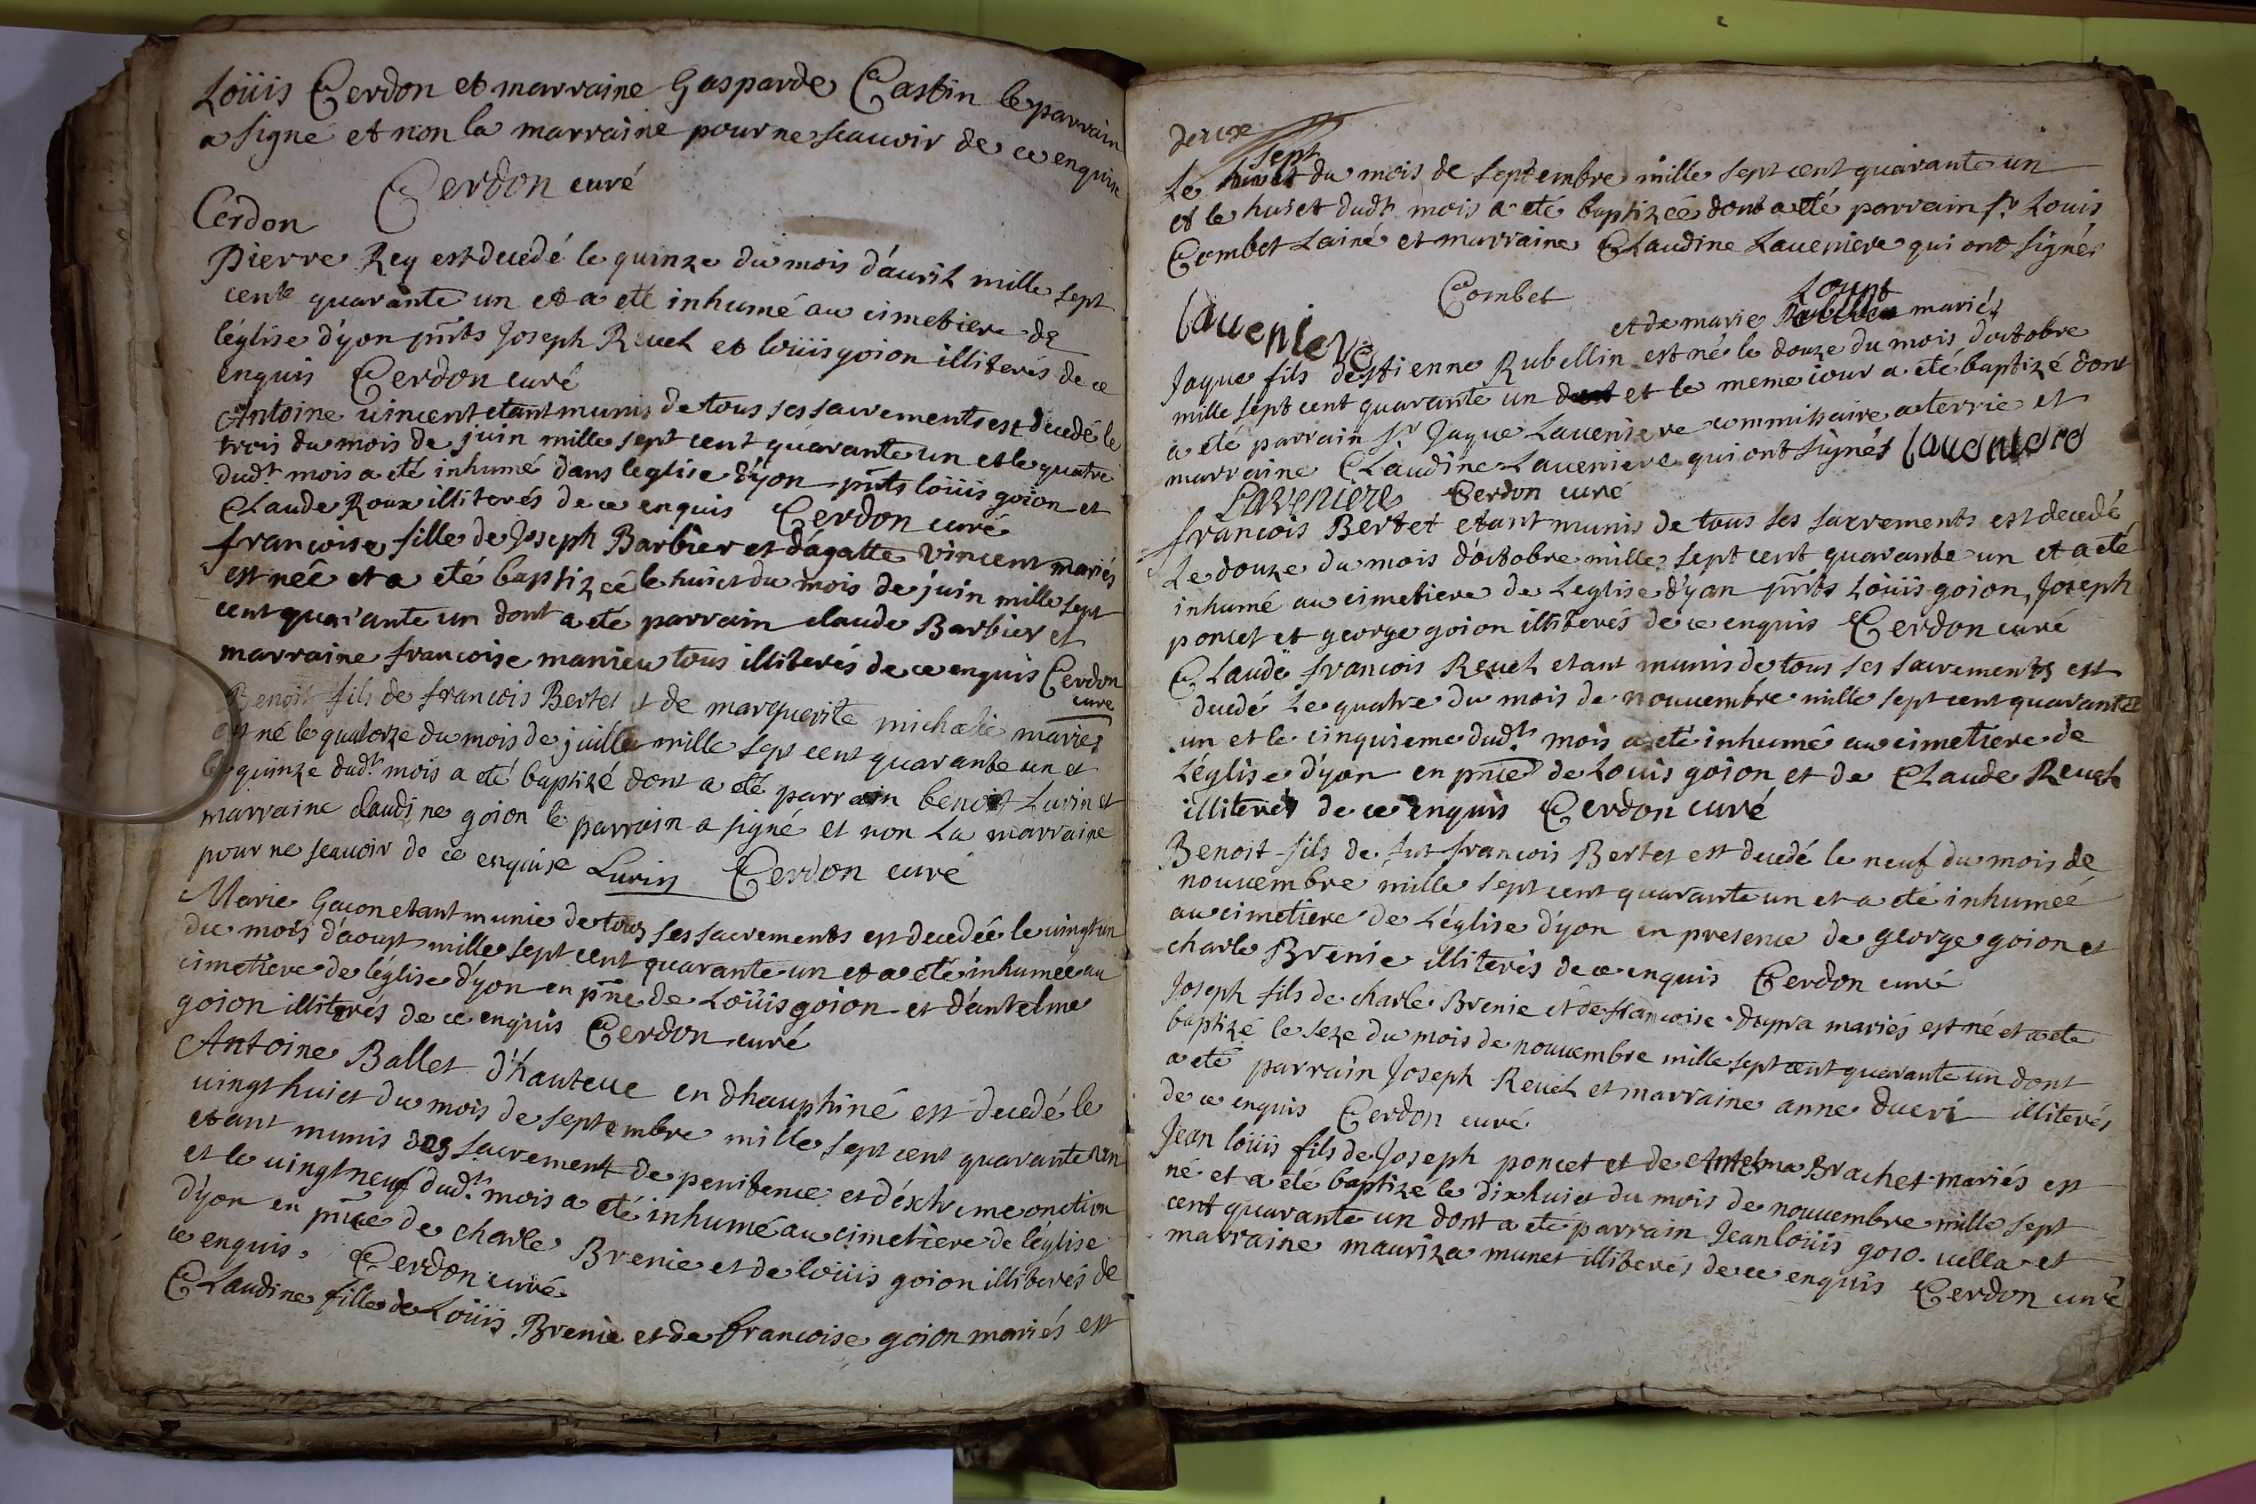 Loüis Cerdon et marraine Gasparde Castin le parrain
a signe et non la marraine pour ne scauoir de ce enquise
Cerdon curé
Cerdon
Pierre Rey est decedé le quinze du mois d'auril mille sept
cent quarante un et a eté inhumé au cimetiere de
l'église d'yon pnts Joseph Reuel et loüis goion illiterés de ce
enquis Cerdon curé
Antoine uincent etant munis de tous ses sacrements est decedé le
trois du mois de juin mille sept cent quarante un et le quatre
dudt mois a eté inhumé dans leglise d'yon pnts loüis goion et
Claude Roux illiterés de ce enquis Cerdon curé
francoise fille de Joseph Barbier et d'agatte Vincent mariés
est neé et a eté baptizeé le huict du mois de juin mille sept
cent quarante un dont a eté parrain claude Barbier et
marraine francoise manieu tous illiterés de ce enquis Cerdon
curé
Benoit fils de francois Bertet et de marguerite mariés
est né le quatorze du mois de juillet mille sept cent quarante un et
le quinze dudt mois a eté baptizé dont a eté parrain benoit Lurin et
marraine claudine goion le parrain a signé et non La marraine
pour ne scauoir de ce enquise Lurin Cerdon curé
Marie Gacon etant munie de tous ses sacrements est decedeé le uingt un
du mois d'aoust mille sept cent quarante un et a eté inhumeé au
cimetiere de l'église d'yon en pñce de Loüis goion et d'antelme
goion illiterés de ce enquis Cerdon curé
Antoine Ballet d'hauteue en dhauphiné est decedé le
uingt huict du mois de septembre mille sept cent quarante un
etant munis des sacrement de penitence et d'éxtreme onction
et le uingt neuf dudt mois a eté inhumé au cimetiere de l'église
d'yon en pñce de charle Brenie et de loüis goion illiterés de
ce enquis. Cerdon curé
Claudine fille de Loüis Brenie et de francoise goion mariés est
deux
sept
Le du mois de septembre mille sept cent quarante un
et le huict dudt mois a eté baptizeé dont a eté parrain sr Louis
Combet Lainé et marraine Claudine Laueniere qui ont signés
Combet
Laueniere
et de marie mariés
Jaque fils destienne Rubellin est né le douze du mois d'octobre
mille sept cent quarante un et le meme iour a eté baptizé dont
a eté parrain sr Jaque Laueniere commissaire a terrie et
marraine Claudine Laueniere qui ont signés Laueniere
Laveniere Cerdon curé
francois Bertet etant munis de tous ses sacrements est decedé
Le douze du mois d'octobre mille sept cent quarante un et a eté
inhumé au cimetiere de Leglise d'yon pnts Loüis goion, Joseph
poncet et george goion illiterés de ce enquis Cerdon curé
Claude francois Reuel etant munis de tous ses sacrements est
decedé Le quatre du mois de nouuembre mille sept cent quarante
un et le cinquieme dudt mois a eté inhumé au cimetiere de
L'église d'yon en pñce de Louis goion et de Claude Reuel
illiterés de ce enquis Cerdon curé
Benoit fils de fut francois Bertet est decedé le neuf du mois de
nouuembre mille sept cent quarante un et a eté inhumeé
au cimetiere de L'église d'yon en presence de george goion et
charle Brenie illiterés de ce enquis Cerdon curé
Joseph fils de charle Brenie et de francoise dupra mariés est né et a eté
baptizé le seze du mois de nouuembre mille sept cent quarante un dont
a eté parrain Joseph Reuel et marraine anne illiterés
de ce enquis Cerdon curé
Jean loüis fils de Joseph poncet et de Antelma Brachet mariés est
né et a eté baptizé le dix huict du mois de nouuembre mille sept
cent quarante un dont a eté parrain Jean loüis goio. uella et
marraine mauriza munet illiterés de ce enquis Cerdon curé